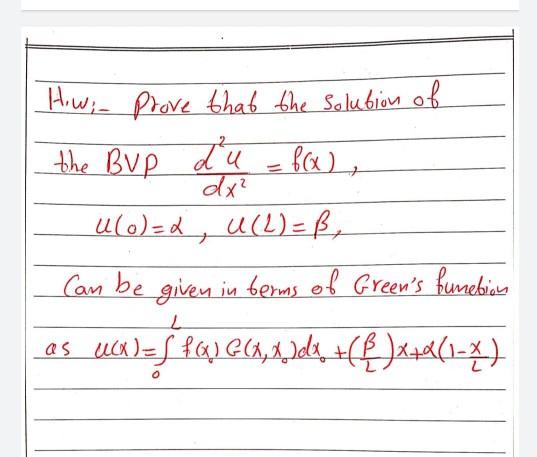 H.w:- Prove that the solution of
the BVP d²u/dx² = f(x),
u(0)=α, u(L)=β,
Can be given in terms of Green's function
as u(x)=∫₀ᴸ f(x₀) G(x,x₀)dx₀ +(β/L)x+α(1-x/L)